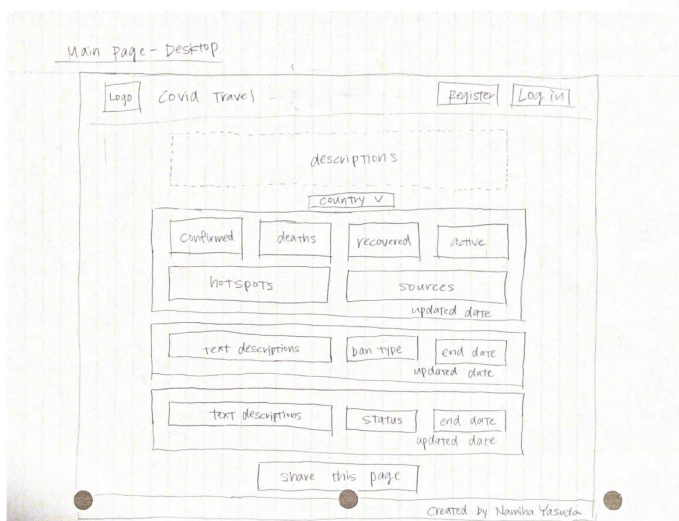 Main page - Desktop
Logo Covid Travel Register Log in
descriptions
country v
Confirmed deaths recovered active
hotspots sources
updated date
text descriptions ban type end date
updated date
text descriptions status end date
updated date
share this page
Created by Namiha Yasuda